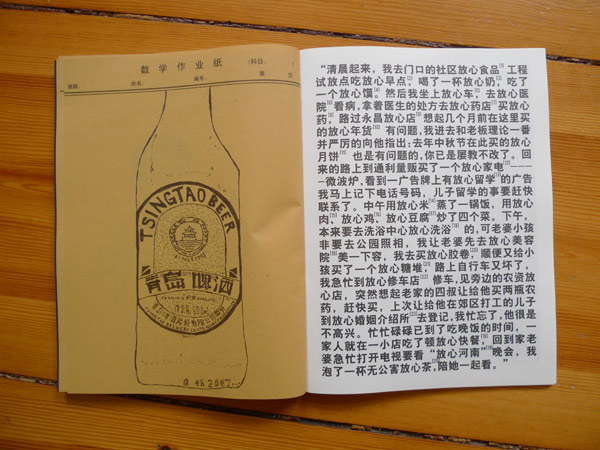 数学作业纸
（科目：
班级：
姓名：
编号：
第
页
TSINGTAO BEER
TSINGTAO
青岛啤酒
“清晨起来，我去门口的社区放心食品 工程
试放点吃放心早点 喝了一杯放心奶，吃了
一个放心馍。然后我坐上放心车，去放心医
院 看病，拿着医生的处方去放心药店 买放心
药，路过永昌放心店 想起几个月前在这里买
的放心年货 有问题，我进去和老板理论一番
并严厉的向他指出：去年中秋节在此买的放心
月饼 也是有问题的，你已是屡教不改了。回
来的路上到通利量贩买了一个放心家电 ——
——微波炉，看到一广告牌上有放心留学 的广告
我马上记下电话号码，儿子留学的事要赶快
联系了。中午用放心米 蒸了一锅饭，用放心
肉、放心鸡、放心豆腐 炒了四个菜。下午，
本来要去洗浴中心放心洗浴 的，可老婆小孩
非要去公园照相，我让老婆先去放心美容
院 美一下容，我去买放心胶卷，顺便又给小
孩买了一个放心糖堆，路上自行车又坏了，
我急忙到放心修车店 修车，见旁边的农资放
心店，突然想起老家的四叔让给他买两瓶农
药，赶快买，上次让给他在郊区打工的儿子
到放心婚姻介绍所 去登记，我忙忘了，他很是
不高兴。忙忙碌碌已到了吃晚饭的时间，一
家人就在一小店吃了顿放心快餐，回到家老
婆急忙打开电视要看“放心河南”晚会，我
泡了一杯无公害放心茶，陪她一起看。”